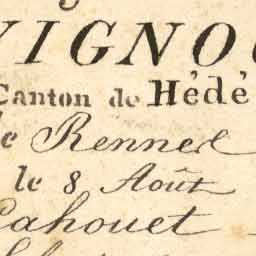 VIGNOC
Canton de Hédé
de Rennes
le 8 Août
Cahouet